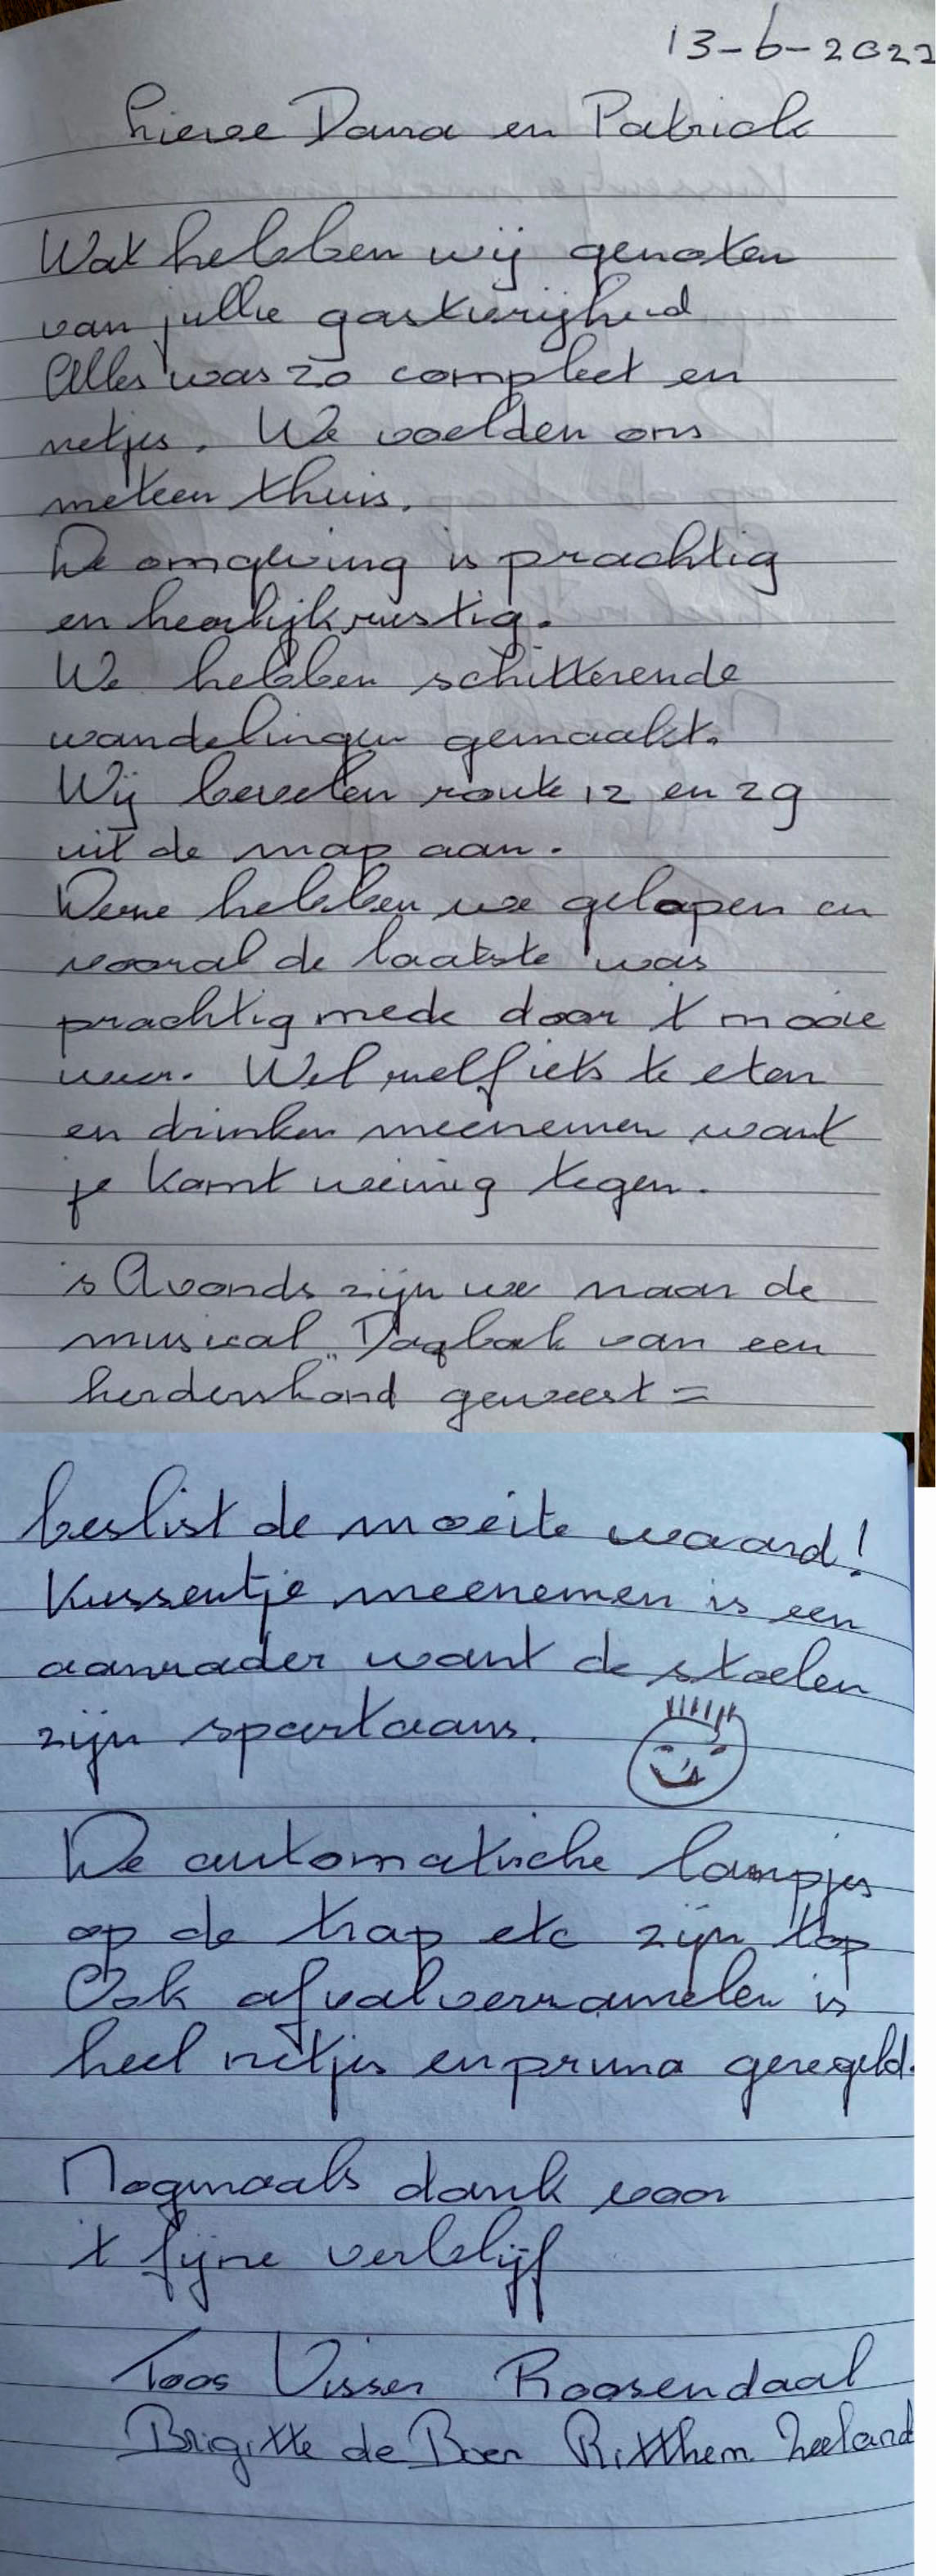 13-6-2022
Lieve Dana en Patrick
Wat hebben wij genoten
van jullie gastvrijheid
Alles was zo compleet en
netjes. We voelden ons
meteen thuis.
De omgeving is prachtig
en heerlijk rustig.
We hebben schitterende
wandelingen gemaakt.
Wij bevelen route 12 en 29
uit de map aan.
Deze hebben we gelopen en
vooral de laatste was
prachtig mede door 't mooie
weer. Wel zelf iets te eten
en drinken meenemen want
je komt weinig tegen.
's Avonds zijn we naar de
musical "Dagboek van een
herdershond geweest =
beslist de moeite waard!
Kussentje meenemen is een
aanrader want de stoelen
zijn spartaans.
De automatische lampjes
op de trap etc zijn top
Ook afvalverzamelen is
heel netjes en prima geregeld.
Nogmaals dank voor
't fijne verblijf
Toos Visser Roosendaal
Brigitte de Boer Ritthem Zeeland